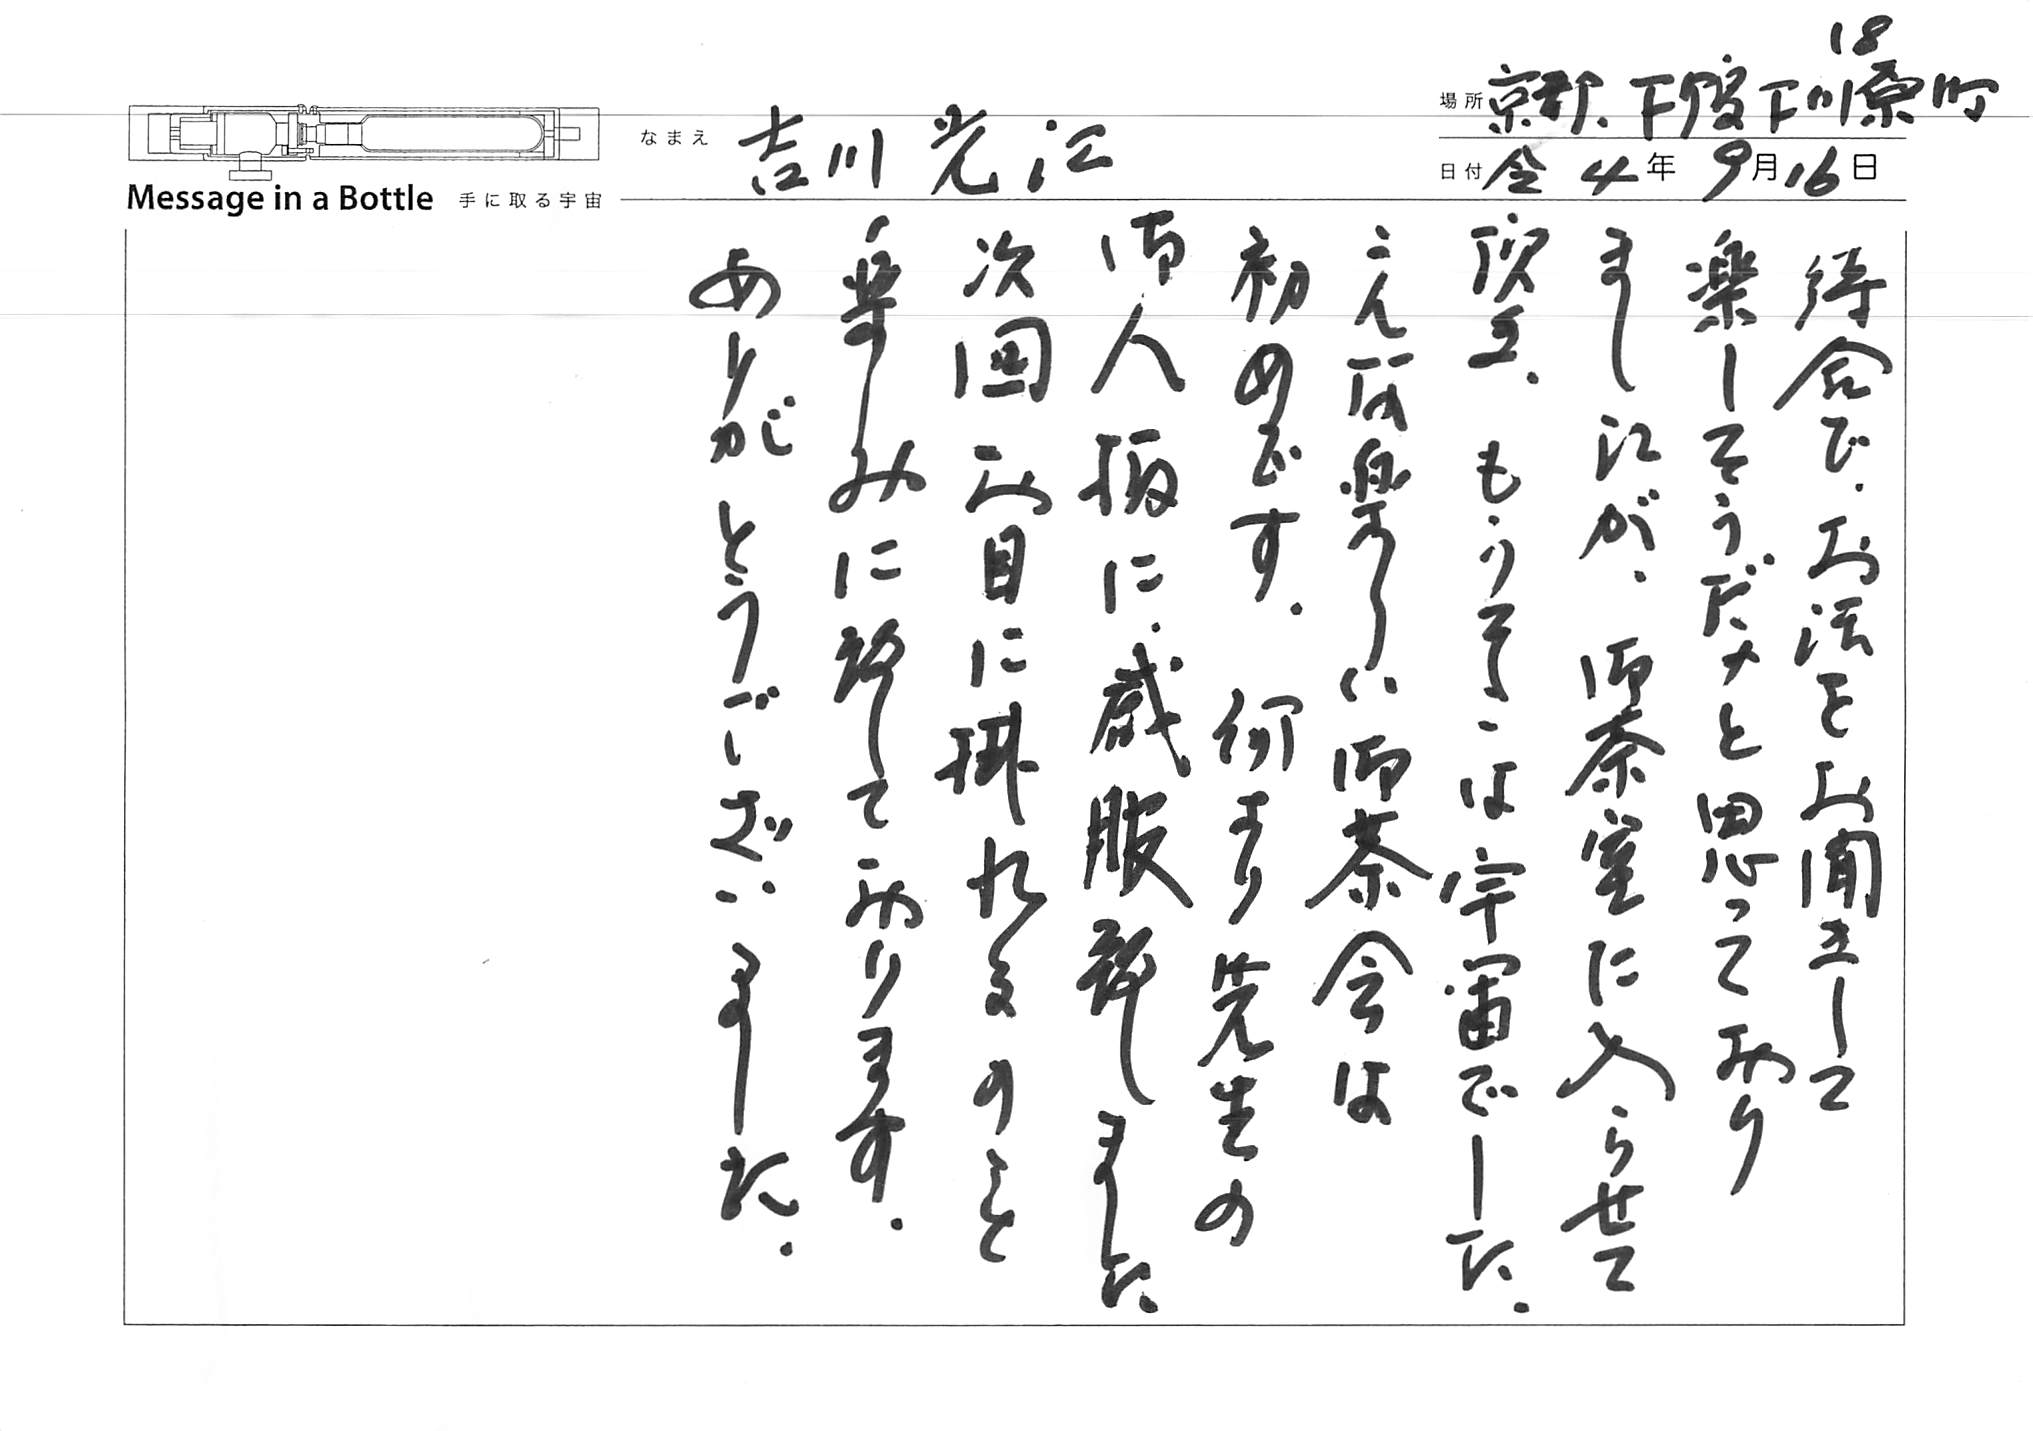 Message in a Bottle 手に取る宇宙
なまえ 吉川光江
18
場所 京都、下段下川原町
日付 令4年9月16日
待合で、お話をお聞きして
楽しそうだナと思っており
ましたが、御茶室に入らせて
頂き、もうそこは宇宙でした。
こんな楽しい御茶会は
初めてです。何より先生の
御人振に、感服致しました
次回お目に掛れるのこと
楽しみに致しております。
ありがとうございました。